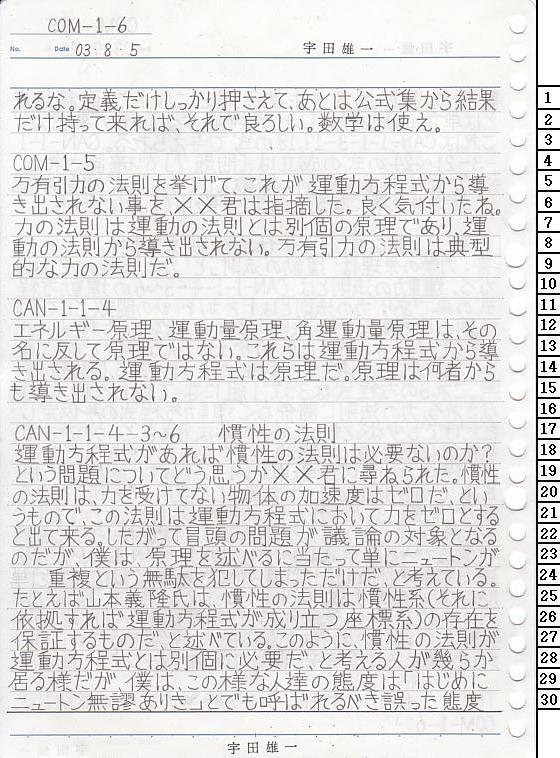 COM-1-6
No. Date 03・8・5 宇田雄一
れるな。定義だけしっかり押さえて、あとは公式集から結果
だけ持って来れば、それで良ろしい。数学は使え。
COM-1-5
万有引力の法則を挙げて、これが運動方程式から導
き出されない事を、××君は指摘した。良く気付いたね。
力の法則は運動の法則とは別個の原理であり、運
動の法則から導き出されない。万有引力の法則は典型
的な力の法則だ。
CAN-1-1-4
エネルギー原理、運動量原理、角運動量原理は、その
名に反して原理ではない。これらは運動方程式から導
き出される。運動方程式は原理だ。原理は何者から
も導き出されない。
CAN-1-1-4-3~6 慣性の法則
運動方程式があれば慣性の法則は必要ないのか?
という問題についてどう思うか××君に尋ねられた。慣性
の法則は、力を受けてない物体の加速度はゼロだ、とい
うもので、この法則は運動方程式において力をゼロとする
と出て来る。したがって冒頭の問題が議論の対象となる
のだが、僕は、原理を述べるに当たって単にニュートンが
重複という無駄を犯してしまっただけだ、と考えている。
たとえば山本義隆氏は、慣性の法則は慣性系(それに
依拠すれば運動方程式が成り立つ座標系)の存在を
保証するものだ、と述べている。このように、慣性の法則が
運動方程式とは別個に必要だ、と考える人が幾らか
居る様だが、僕は、この様な人達の態度は「はじめに
ニュートン無謬ありき」とでも呼ばれるべき誤った態度
宇田雄一
1
2
3
4
5
6
7
8
9
10
11
12
13
14
15
16
17
18
19
20
21
22
23
24
25
26
27
28
29
30